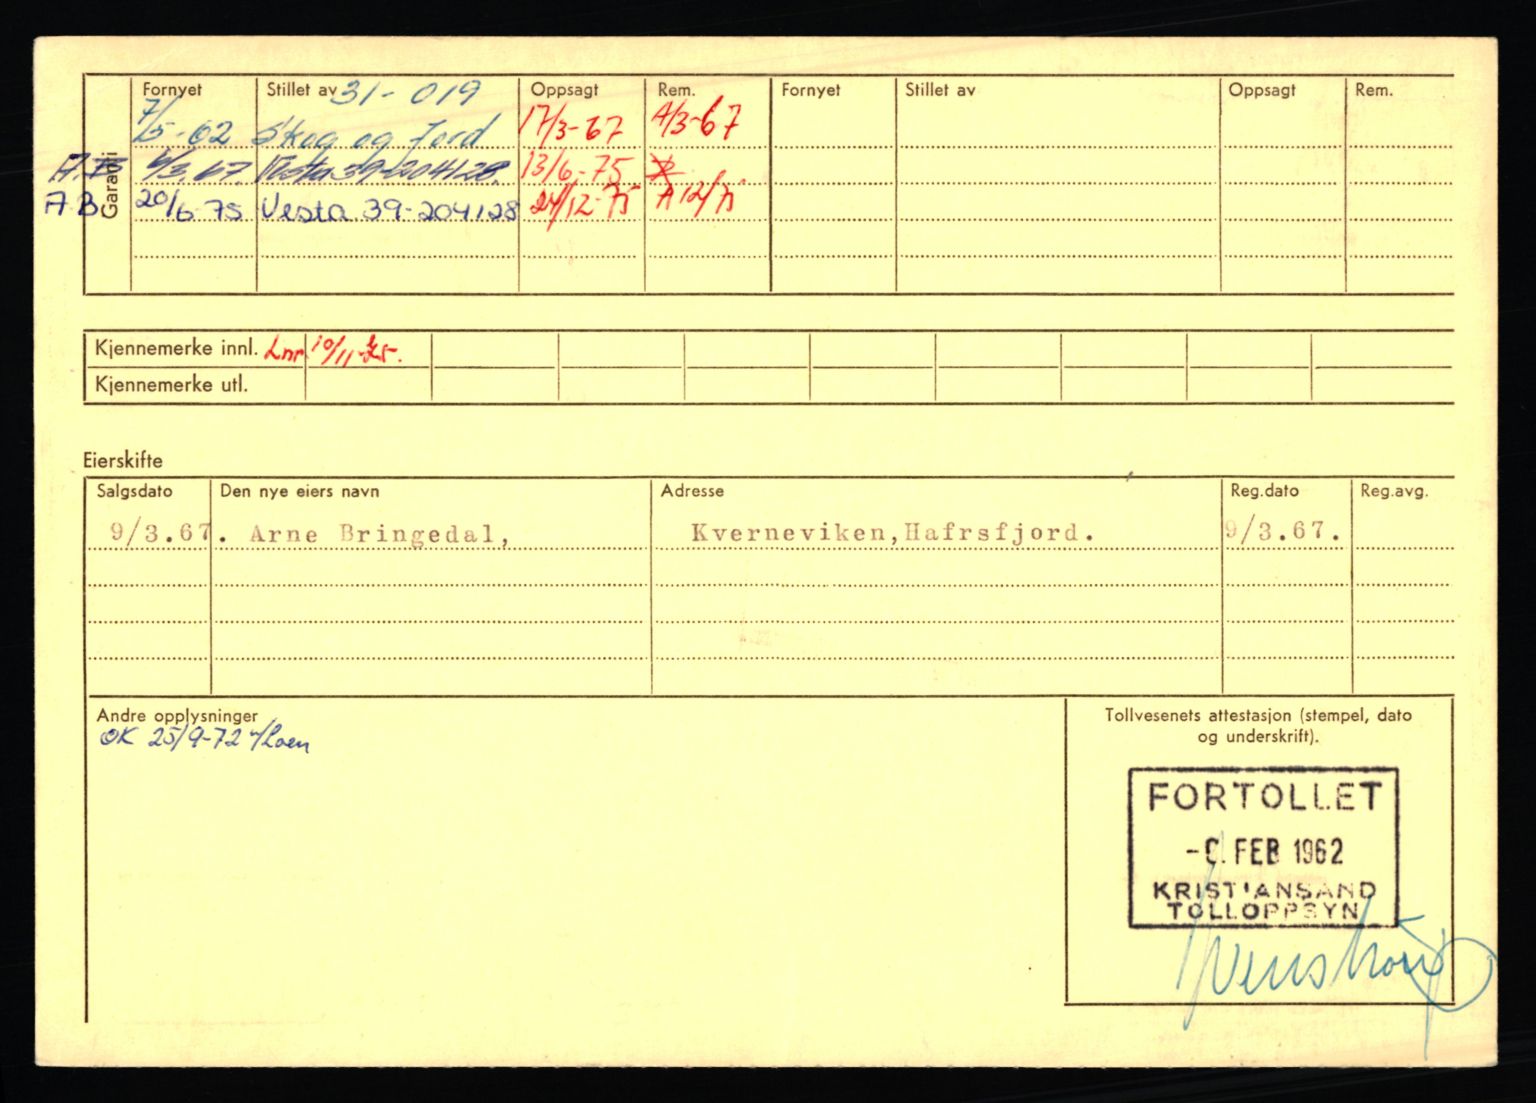 Garanti
Fornyet Stillet av 31-019 Oppsagt Rem. Fornyet Stillet av Oppsagt Rem.
7/5-62 Skog og Jord 17/3-67 A/3-67
A.B 6/3.67. Vesta 39-204128. 13/6-75
A B 20/6-75 Vesta 39-204128 24/12-75 A 12/75
Kjennemerke innl. Lnr. 10/11-75.
Kjennemerke utl.
Eierskifte
Salgsdato Den nye eiers navn Adresse Reg.dato Reg.avg.
9/3.67. Arne Bringedal, Kverneviken,Hafrsfjord. 9/3.67.
Andre opplysninger
OK 25/9-72
Tollvesenets attestasjon (stempel, dato
og underskrift).
FORTOLLET
FEB 1962
KRISTIANSAND
TOLLOPPSYN